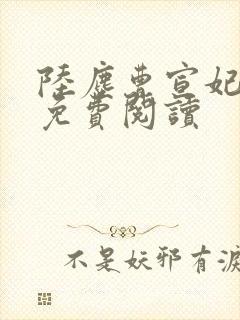 陸塵曹宣妃
免費閱讀
不是妖邪有淚